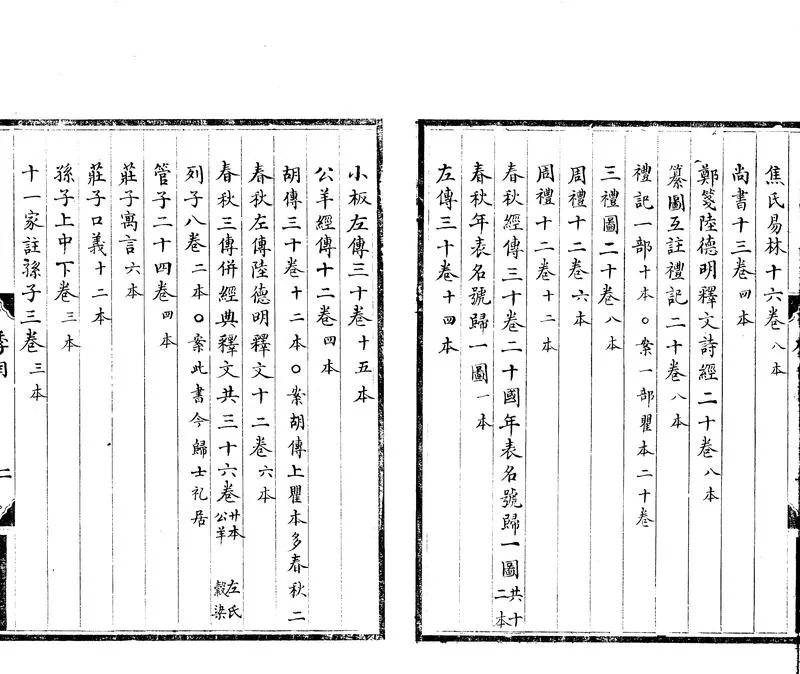 焦氏易林十六卷八本
尚書十三卷四本
鄭箋陸德明釋文詩經二十卷八本
纂圖互註禮記二十卷八本
禮記一部十本○案一部瞿本二十卷
三禮圖二十卷八本
周禮十二卷六本
周禮十二卷十二本
春秋經傳三十卷二十國年表名號歸一圖共十二本
春秋年表名號歸一圖一本
左傳三十卷十四本
小板左傳三十卷十五本
公羊經傳十二卷四本
胡傳三十卷十二本○案胡傳上瞿本多春秋二
春秋左傳陸德明釋文十二卷六本
春秋三傳併經典釋文共三十六卷廿本 左氏公羊 穀梁
列子八卷二本○案此書今歸士礼居
管子二十四卷四本
莊子寓言六本
莊子口義十二本
孫子上中下卷三本
十一家註孫子三卷三本
二